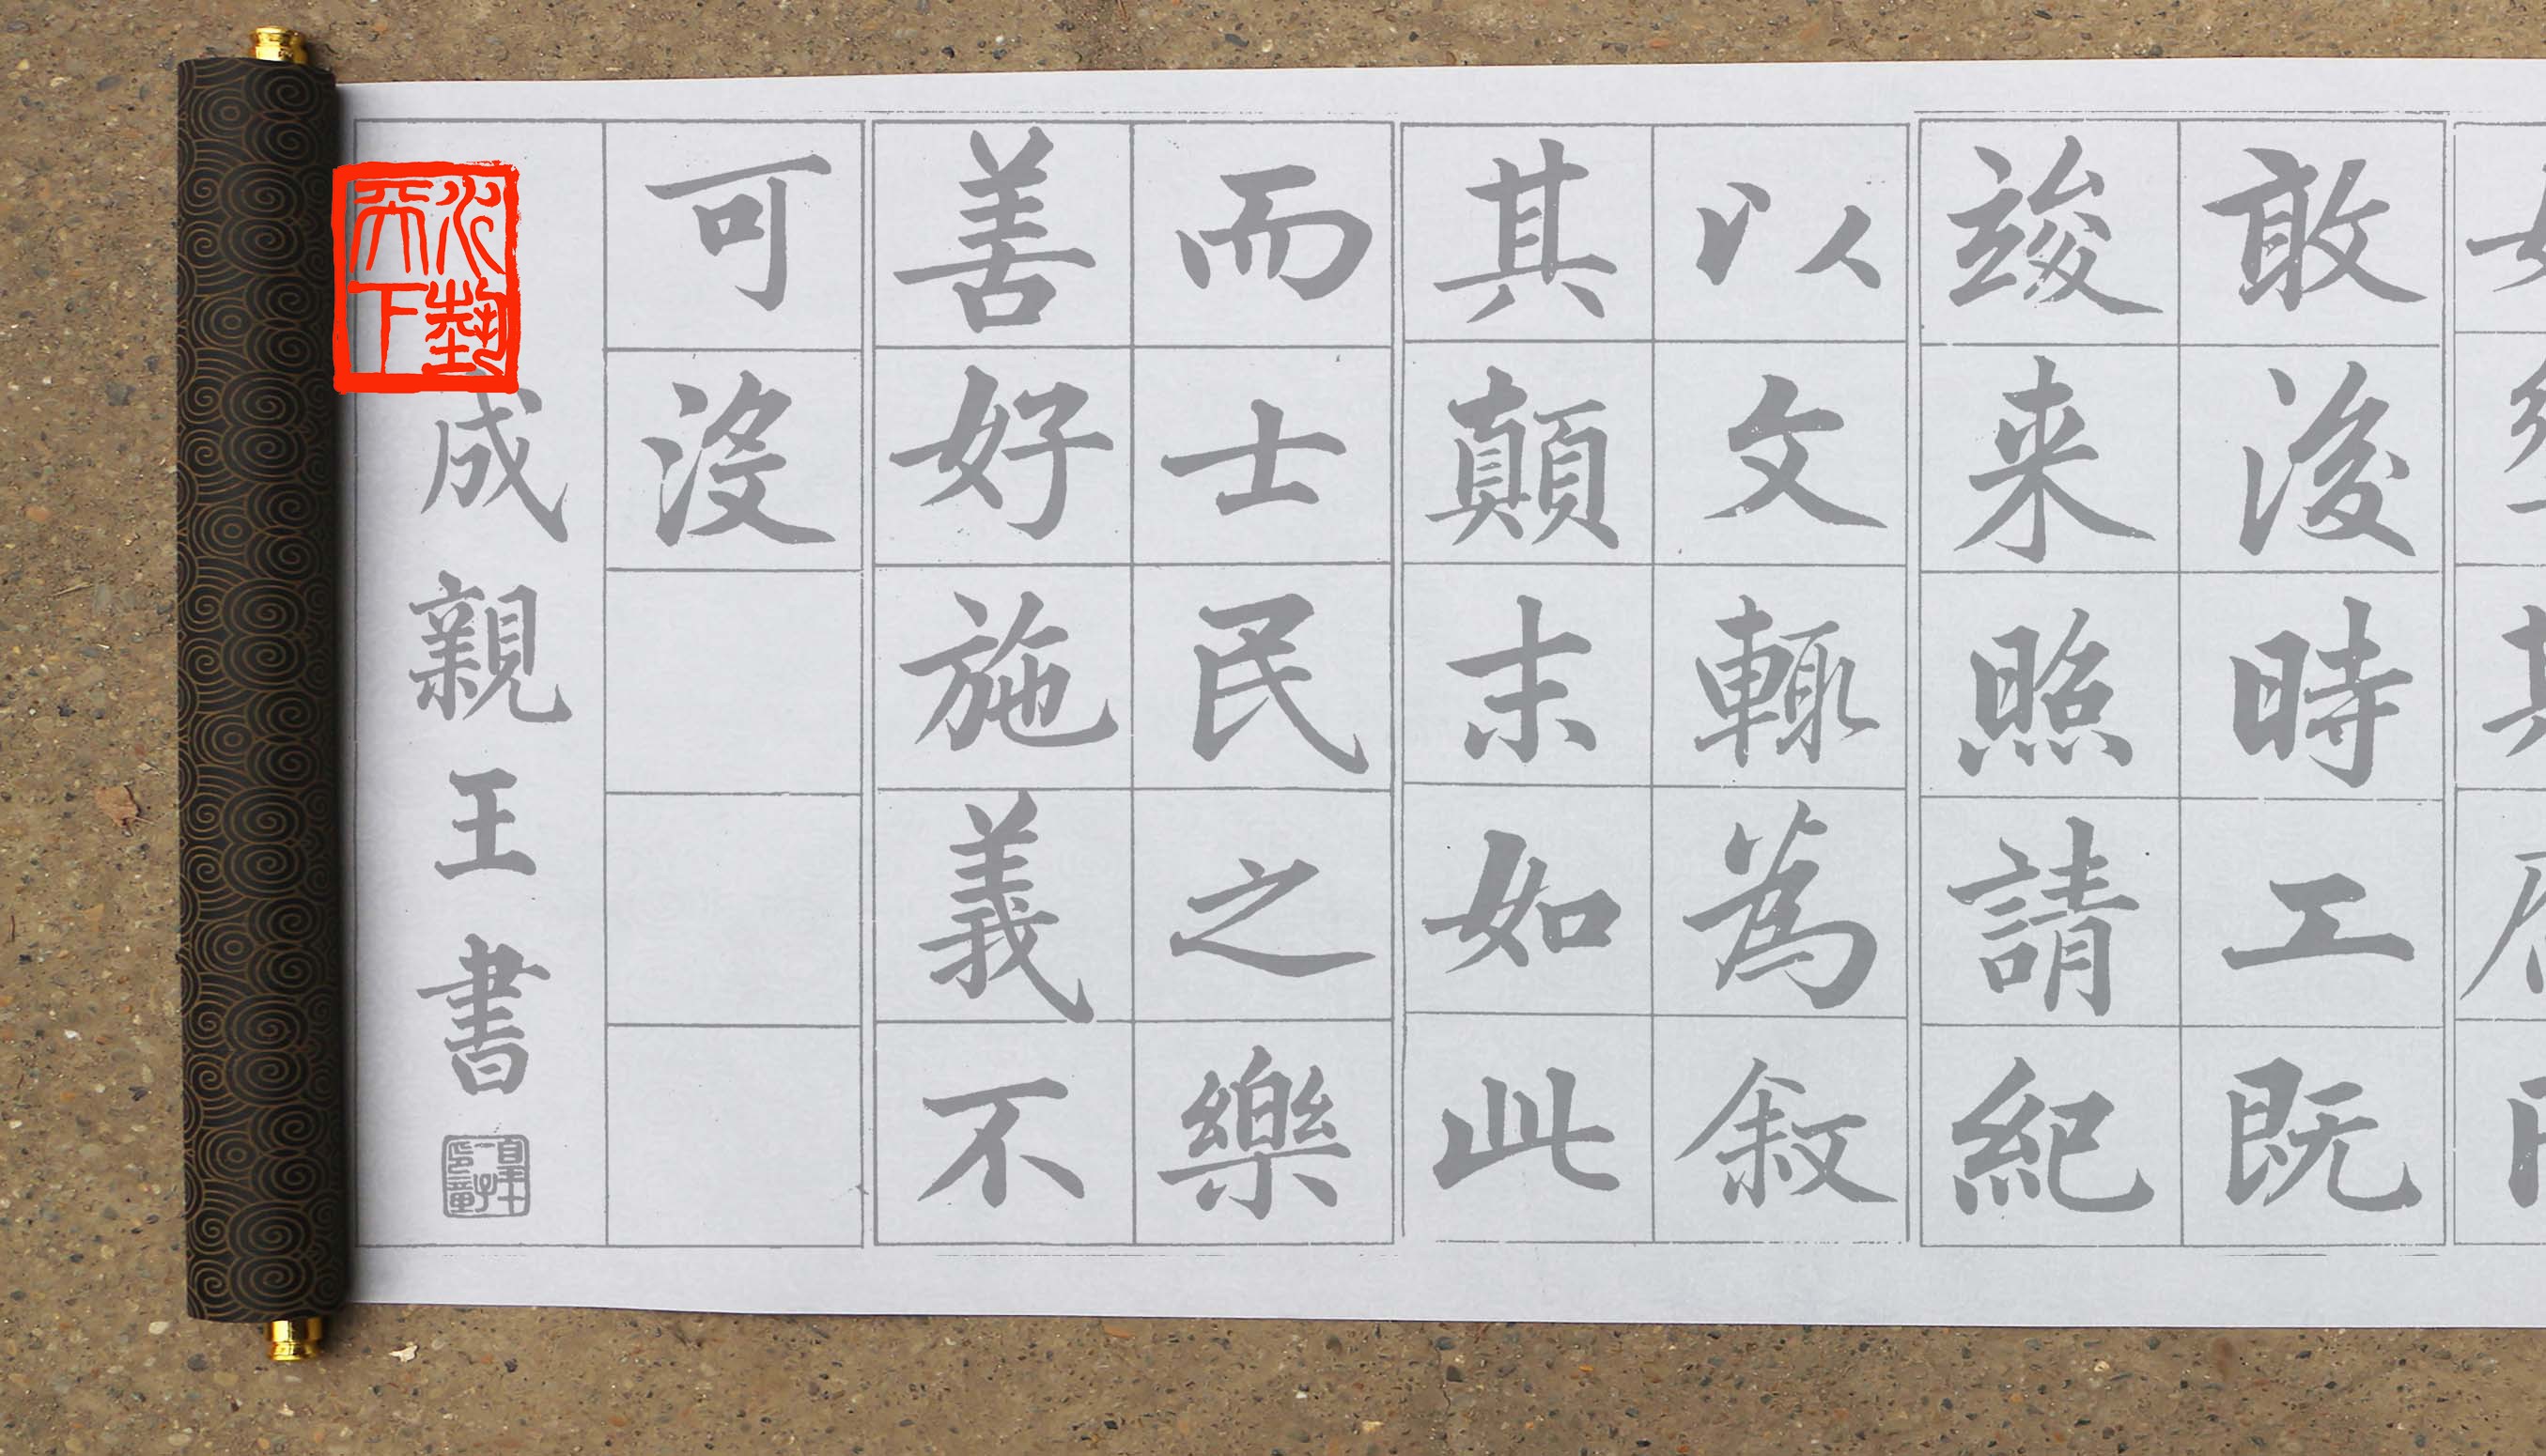 敢後時工既
竣来照請紀
以文輙為敘
其顛末如此
而士民之樂
善好施義不
可沒
成親王書